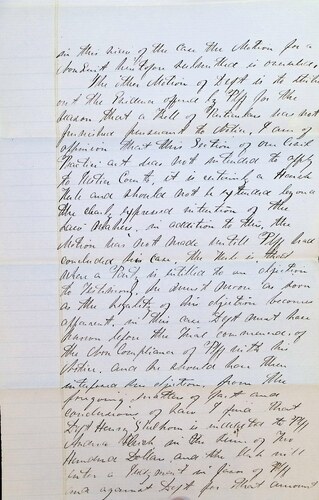 in this view of the case the Motion for a
Nonsuit heretofore submitted is overruled.
The other Motion of Deft is to strike
out the Evidence offered by Plff for the
reason that a Bill of Particulars was not
furnished pursuant to Notice, I am of
opinion that this Section of our Civil
Practice act was not intended to apply
to Justice Courts, it is certainly a Harsh
Rule and should not be extended beyond
the clearly expressed intention of the
law makers, in addition to this, the
Motion was not made untill Plff had
concluded his case, the Rule is that
where a Party is entitled to an objection
to Testimony, he must as soon
as the legality of his objection becomes
apparent, in this case Deft must have
known before the Trial commenced, of
the Non Compliance of Plff with his
Notice, and he should have then
interposed his objection, from the
foregoing matters of fact and
conclusions of Law I find that
Deft Henry is indebted to Plff
Andrew in the sum of Two
Hundred Dollars and the Clerk will
enter a Judgment in favor of Plff
and against Deft for that amount